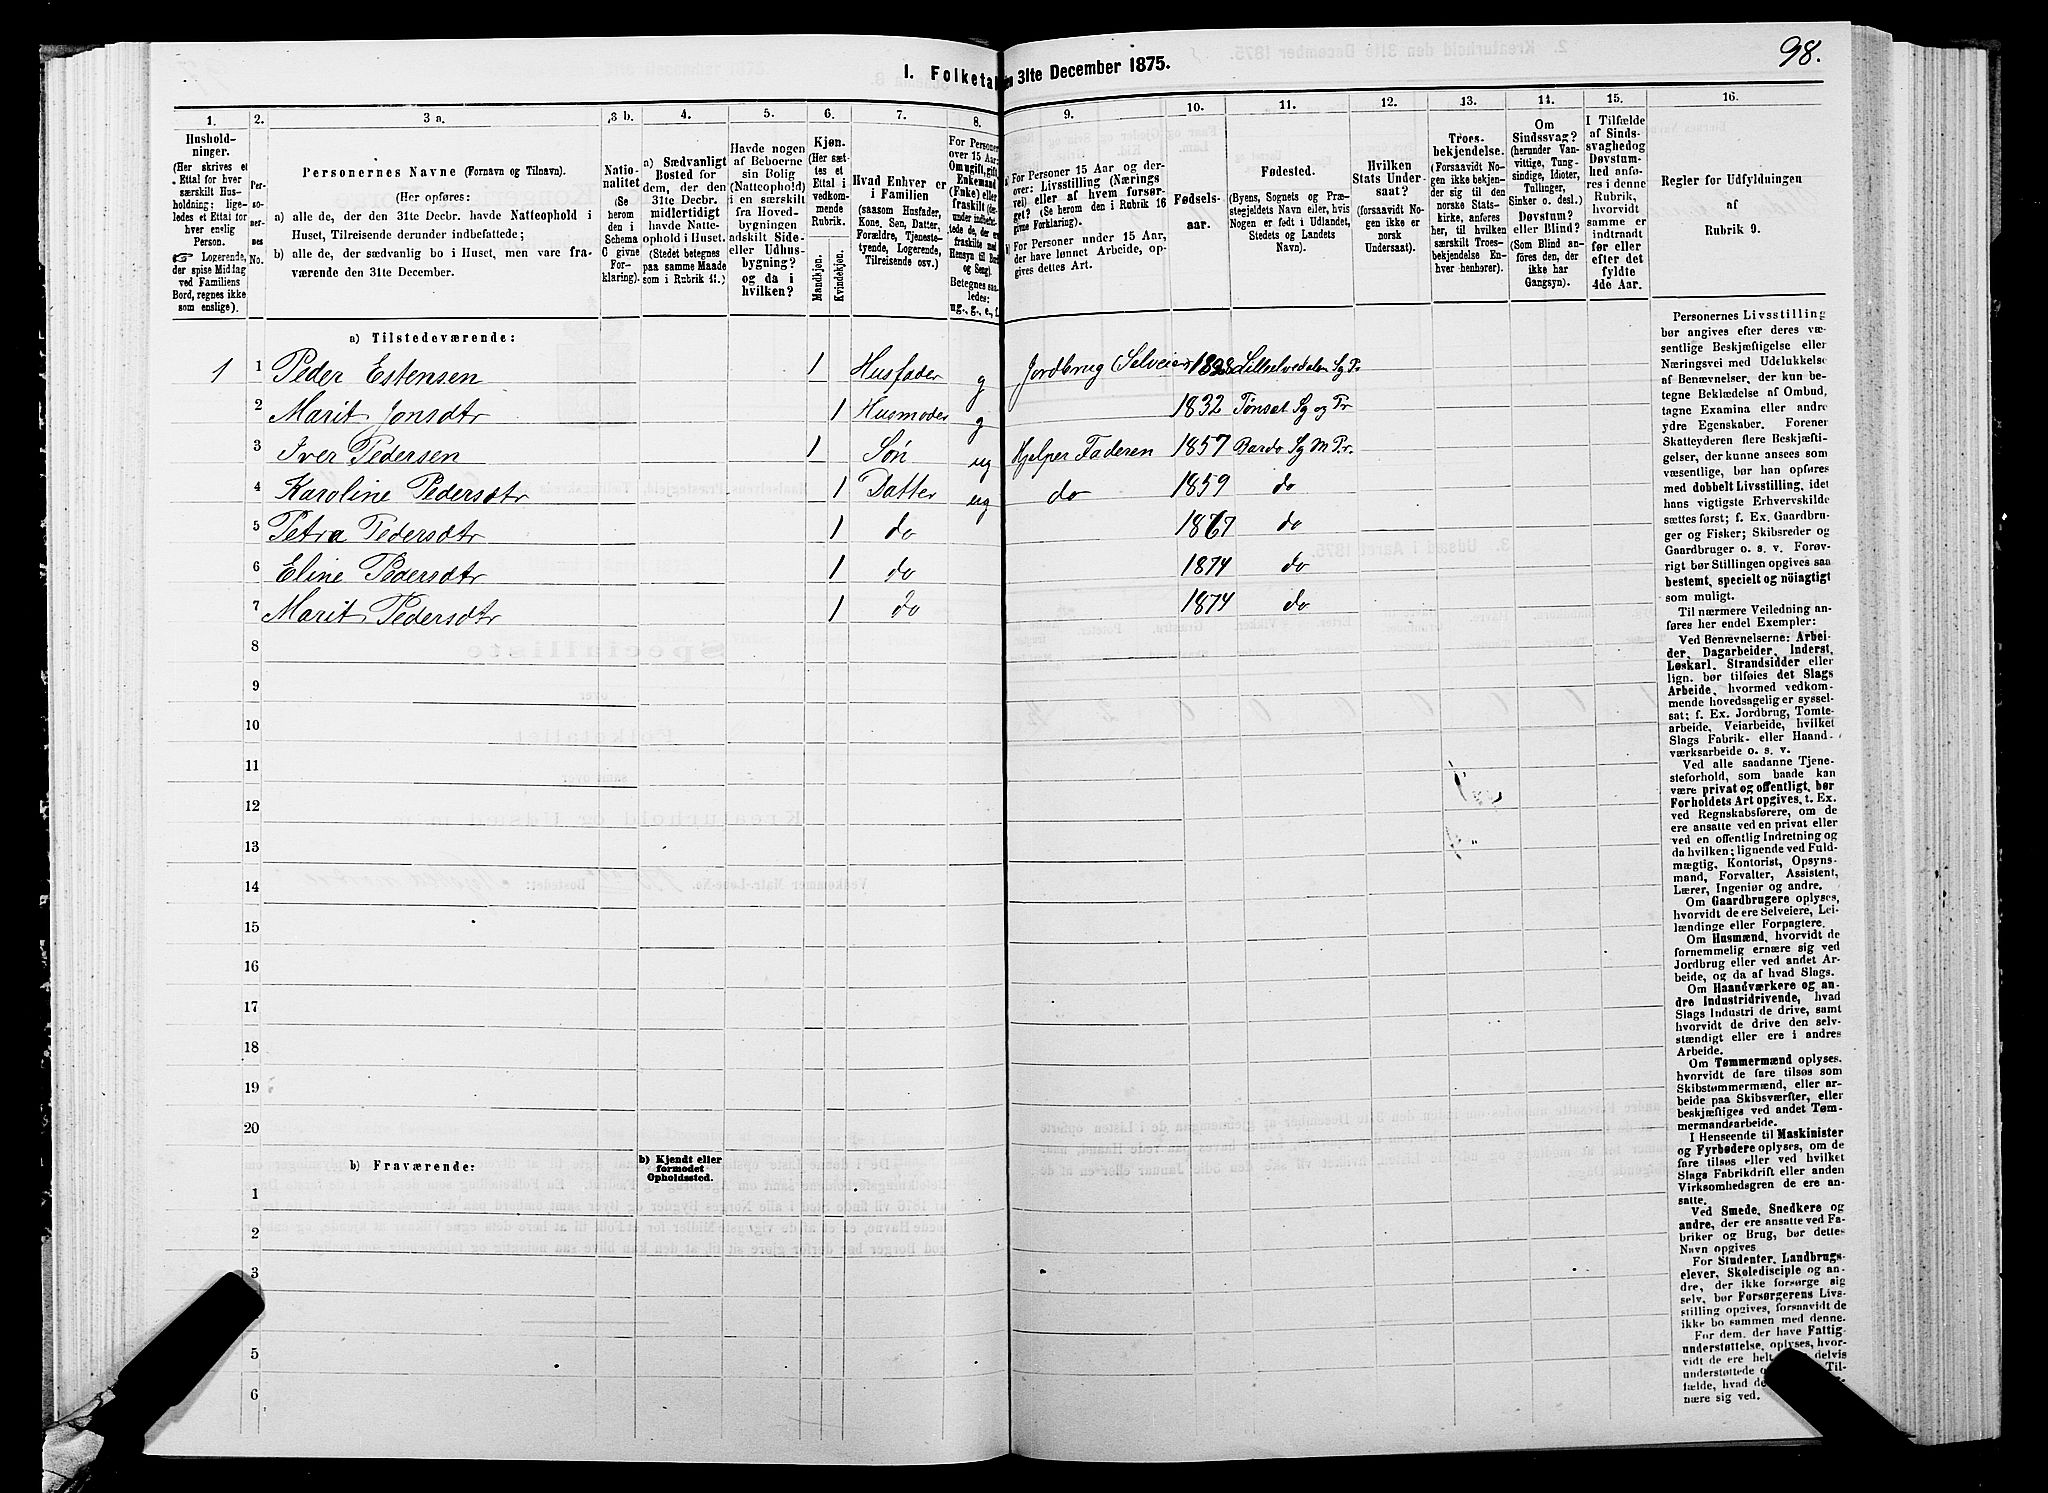 98.
I. Folketal
en 31te December 1875.
1. 2. 3 a. 3 b. 4. 5. 6. 7. 8. 9. 10. 11. 12. 13. 14. 15. 16.
Hushold-
ninger.
(Her skrives et
Ettal for hver
særskilt Hus-
holdning; lige-
ledes et Ettal for
hver enslig
Person.
☞ Logerende,
der spise Middag
ved Familiens
Bord, regnes ikke
som enslige).
Per-
so-
ner-
nes
No.
Personernes Navne (Fornavn og Tilnavn).
(Her opføres:
a) alle de, der den 31te Decbr. havde Natteophold i
Huset, Tilreisende derunder indbefattede;
b) alle de, der sædvanlig bo i Huset, men vare fra-
værende den 31te December.
Natio-
nalitet
(Se
herom
den i
Schema
C givne
For-
klaring).
a) Sædvanligt
Bosted for
dem, der den
31te Decbr.
midlertidigt
havde Natte-
ophold i Huset.
(Stedet betegnes
paa samme Maade
som i Rubrik 11.)
Havde nogen
af Beboerne
sin Bolig
(Natteophold)
i en særskilt
fra Hoved-
bygningen
adskilt Side-
eller Udhus-
bygning?
og da i
hvilken?
Kjøn.
(Her sæt-
tes et
Ettal i
vedkom-
mende
Rubrik.
Mandkjøn.
Kvindekjøn.
Hvad Enhver er
i Familien
(saasom Husfader,
Kone, Søn, Datter,
Forældre, Tjeneste-
tyende, Logerende,
Tilreisende osv.)
For Personer
over 15 Aar:
Om ugift, gift,
Enkemand
(Enke) eller
fraskilt (der-
under indbefat-
tede de, der ere
fraskilte med
Hensyn til Bord
og Seng).
Betegnes saa-
ledes:
ug., g., e., f.
a) For Personer 15 Aar og der-
over: Livsstilling (Nærings
vei) eller af hvem forsør-
get? (Se herom den i Rubrik 16
givne Forklaring).
b) For Personer under 15 Aar,
der have lønnet Arbeide, op-
gives dettes Art.
Fødsels-
aar.
Fødested.
(Byens, Sognets og Præ-
stegjeldets Navn eller, hvis
Nogen er født i Udlandet,
Stedets og Landets
Navn).
Hvilken
Stats Under-
saat?
(forsaavidt No-
gen ikke er
norsk
Undersaat).
Troes-
bekjendelse.
(Forsaavidt No-
gen ikke bekjen-
der sig til den
norske Stats-
kirke, anføres
her, til hvilken
særskilt Troes-
bekjendelse En-
hver henhører).
Om
Sindssvag?
(herunder Van-
vittige, Tung-
sindige, Idioter,
Tullinger,
Sinker o. desl.)
Døvstum?
eller Blind?
(Som Blind an-
føres den, der
ikke har
Gangsyn).
I Tilfælde
af Sinds-
svaghed og
Døvstum-
hed anfø-
res i denne
Rubrik,
hvorvidt
samme er
indtraadt
før eller
efter det
fyldte
4de Aar.
Regler for Udfyldningen
af
Rubrik 9.
a) Tilstedeværende:
1 1 Peder Estensen 1 Husfader g Jordbrug Selveier 1828 Lilleelvedalen Sg Pr
2 Marit Jonsdtr 1 Husmoder g 1832 Tønset Sg og Pr
3 Iver Pedersen 1 Søn ug Hjelper Faderen 1857 Bardo Sg M Pr.
4 Karoline Pedersdtr 1 Datter ug do 1859 do
5 Petra Pedersdtr 1 do 1867 do
6 Eline Pedersdtr 1 do 1874 do
7 Marit Pedersdtr 1 do 1874 do
8
9
10
11
12
13
14
15
16
17
18
19
20
b) Fraværende:
b) Kjendt eller
formodet
Opholdssted.
1
2
3
5
6
Personernes Livsstilling
bør angives efter deres væ-
sentlige Beskjæftigelse eller
Næringsvei med Udelukkelse
af Benævnelser, der kun be-
tegne Beklædelse af Ombud,
tagne Examina eller andre
ydre Egenskaber. Forener
Skatteyderen flere Beskjæfti-
gelser, der kunne ansees som
væsentlige, bør han opføres
med dobbelt Livsstilling, idet
hans vigtigste Erhvervskilde
sættes først; f. Ex. Gaardbru-
ger og Fisker; Skibsreder og
Gaardbruger o. s. v. Forøv-
rigt bør Stillingen opgives saa
bestemt, specielt og nöiagtigt
som muligt.
Til nærmere Veiledning an-
føres her endel Exempler:
Ved Benævnelserne: Arbei-
der, Dagarbeider, Inderst,
Løskarl, Strandsidder eller
lign. bør tilføies det Slags
Arbeide, hvormed vedkom-
mende hovedsagelig er syssel-
sat; f. Ex. Jordbrug, Tomte-
arbeide, Veiarbeide, hvilket
Slags Fabrik- eller Haand-
værksarbeide o. s. v.
Ved alle saadanne Tjene-
steforhold, som baade kan
være privat og offentligt, bør
Forholdets Art opgives, t. Ex.
ved Regnskabsførere, om de
ere ansatte ved en privat eller
ved en offentlig Indretning og
da hvilken; lignende ved Fuld-
mægtig, Kontorist, Opsyns-
mand, Forvalter, Assistent,
Lærer, Ingeniør og andre.
Om Gaardbrugere oplyses,
hvorvidt de ere Selveiere, Lei-
lændinge eller Forpagtere.
Om Husmænd, hvorvidt de
fornemmelig ernære sig ved
Jordbrug eller ved andet Ar-
beide, og da af hvad Slags.
Om Haandværkere og an-
dre Industridrivende, hvad
Slags Industri de drive, samt
hvorvidt de drive den selv-
stændigt eller ere i andres
Arbeide.
Om Tømmermænd oplyses,
hvorvidt de fare tilsøs som
Skibstømmermænd, eller ar-
beide paa Skibsværfter, eller
beskjæftiges ved andet Tøm-
mermandsarbeide.
I Henseende til Maskinister
og Fyrbødere oplyses, om de
fare tilsøs eller ved hvilket
Slags Fabrikdrift eller anden
Virksomhedsgren de ere an-
satte.
Ved Smede, Snedkere og
andre, der ere ansatte ved Fa-
briker og Brug, bør dettes
Navn opgives
For Studenter, Landbrugs-
elever, Skoledisciple og an-
dre, der ikke forsørge sig
selv, bør Forsørgerens Livs-
stilling opgives, forsaavidt de
ikke bo sammen med denne.
For dem, der have Fattig-
understøttelse, oplyses, hvor-
vidt de ere helt delvis
understøttede Til-
fælde, hvad de
nære sig ved.